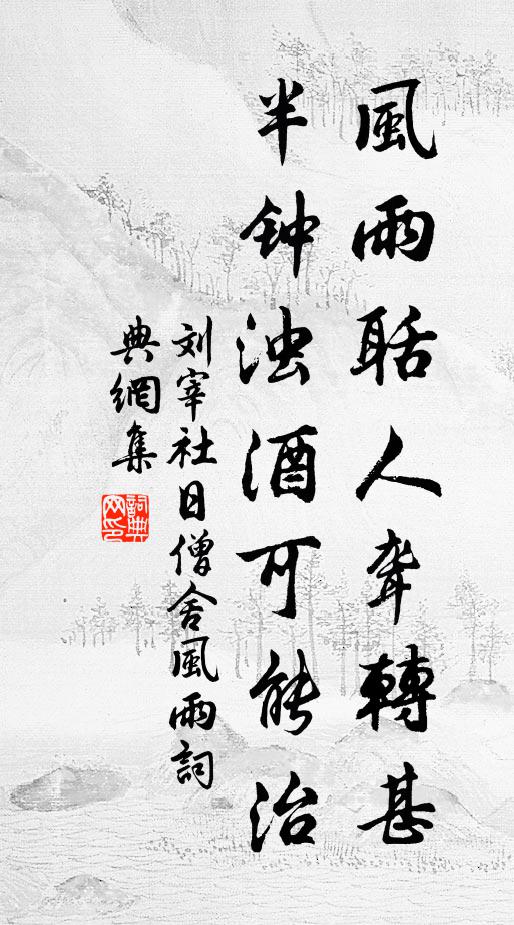 風雨聒人聋轉甚
半钟浊酒可能治
刘宰社日僧舍風雨詞
典網集
詞典
网印